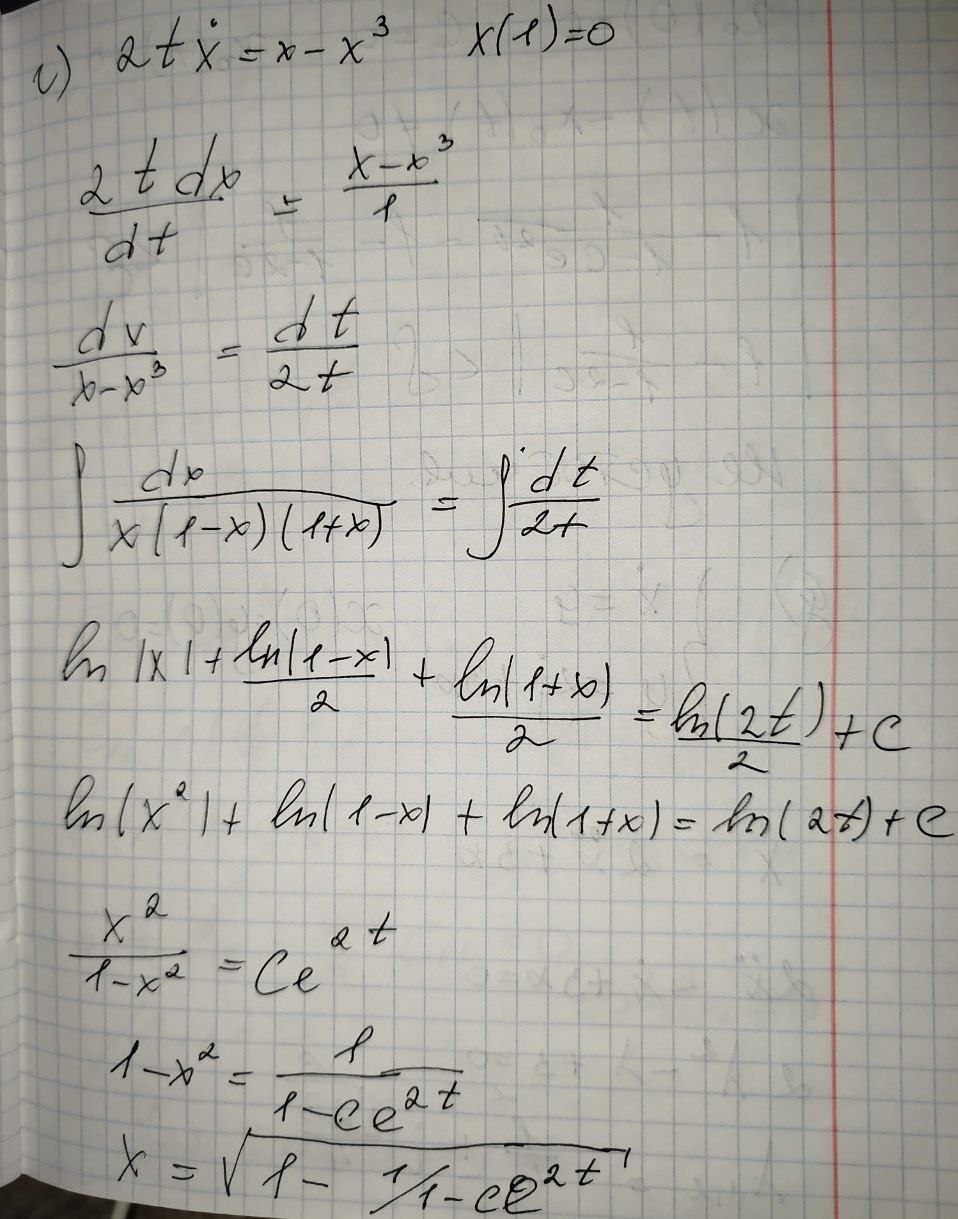 г) 2tẋ = x - x³ x(1)=0
2 t dx / dt = x - x³ / 1
dv / x - x³ = dt / 2t
∫ dx / x(1-x)(1+x) = ∫ dt / 2t
ln |x| + ln|1-x| / 2 + ln(1+x) / 2 = ln(2t) / 2 + C
ln(x²| + ln|1-x| + ln(1+x) = ln(2t) + C
x² / 1-x² = Ce^2t
1-x² = 1 / 1-Ce^2t
x = √(1 - 1/1-ce^2t)